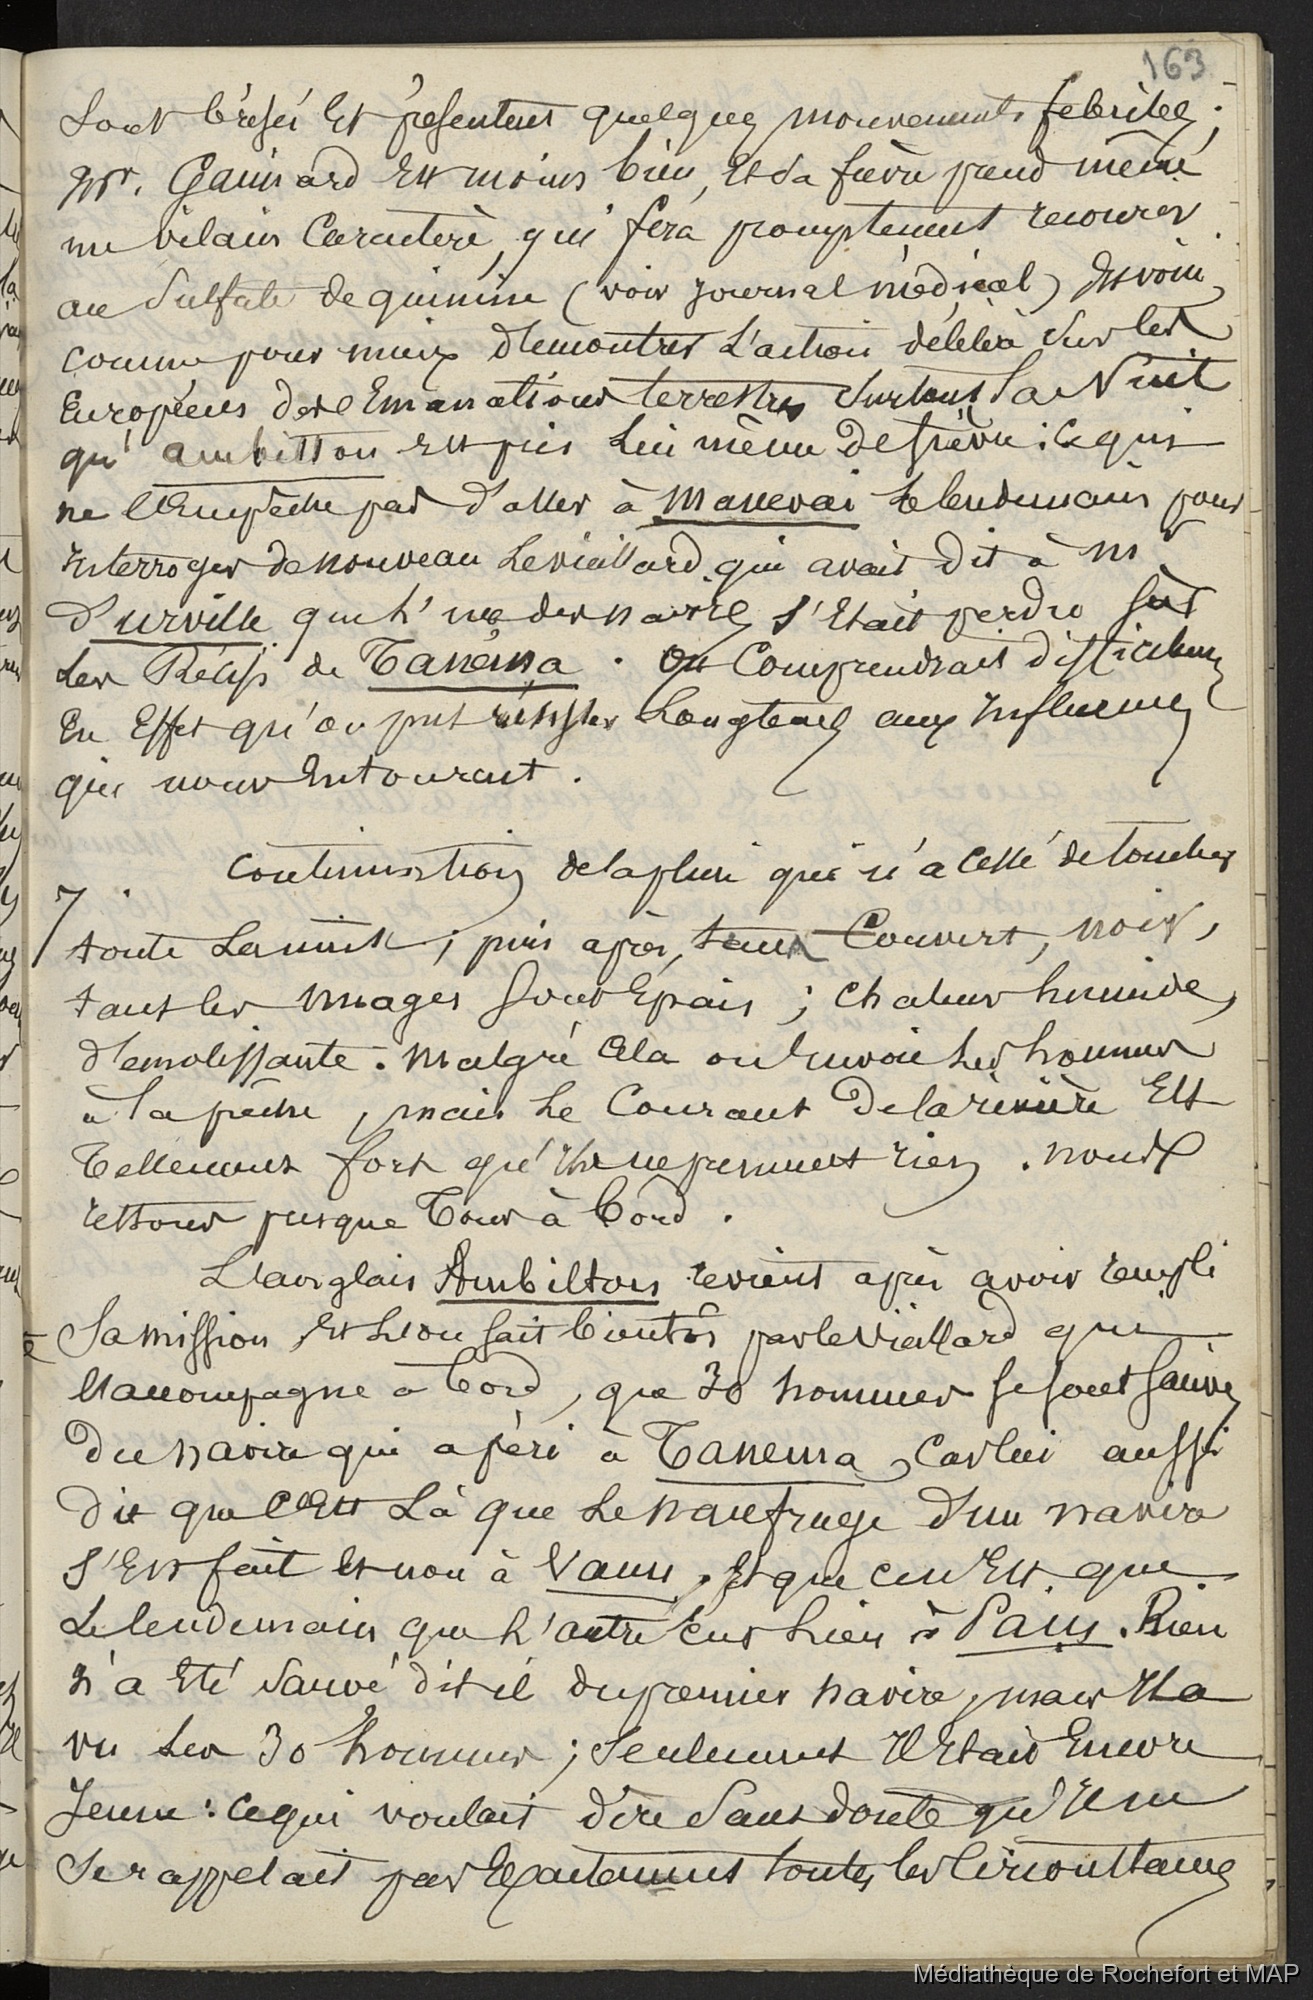 163
sont brisés et présentent quelques mouvements febriles ;
Mr. Gaimard est moins bien, et sa fièvre prend même
un vilain Caractère, qui fera promptement recourir
au Sulfate de quinine (voir journal médical) Et voici,
comme pour mieux démontrer L'action délétère sur les
Européens des Emanations terrestres surtout La Nuit
qu' ambitton est pris lui même de fièvre : ce qui
ne l'Empêche pas d'aller à Manevai le lendemain pour
Interroger de nouveau Le vieillard qui avait dit à Mr
d'urville que L'un des navires s'Etait perdu sur
Les Récifs de Tanéma . On Comprendrait difficilement
En Effet qu'on put résister Longtems aux Influences
qui nous Entourent .
7 Continuation de la pluie qui n'a cessé de tomber
toute La nuit ; puis après, tems Couvert, noir,
tant les nuages sont Epais ; chaleur humide,
d'emolissante . Malgré Cela on Envoie Les hommes
à la pêche , mais Le Courant de la rivière Est
Tellement fort qu'Ils ne prennent rien . nous
restons presque Tous à bord .
L'anglais Ambiltons revient après avoir rempli
Sa mission et L'on sait bientôt par le Vieillard qui
l'accompagne à bord , que 30 hommes se sont sauvés
Du navire qui a péri à Tanema , Car lui aussi
dit que c'Est Là que Le naufrage d'un navire
s'Est fait et non à Vanu , Et que ce n'Est que
Le lendemain que L'autre eut lieu à Paiu . Rien
n'a Eté Sauvé dit il du premier navire , mais Il a
vu Les 30 hommes ; Seulement Il Etait Encore
Jeune : ce qui voulait dire Sans doute qu'Il ne
Se rappelait pas Exactement toutes les Circonstances
Médiathèque de Rochefort et MAP